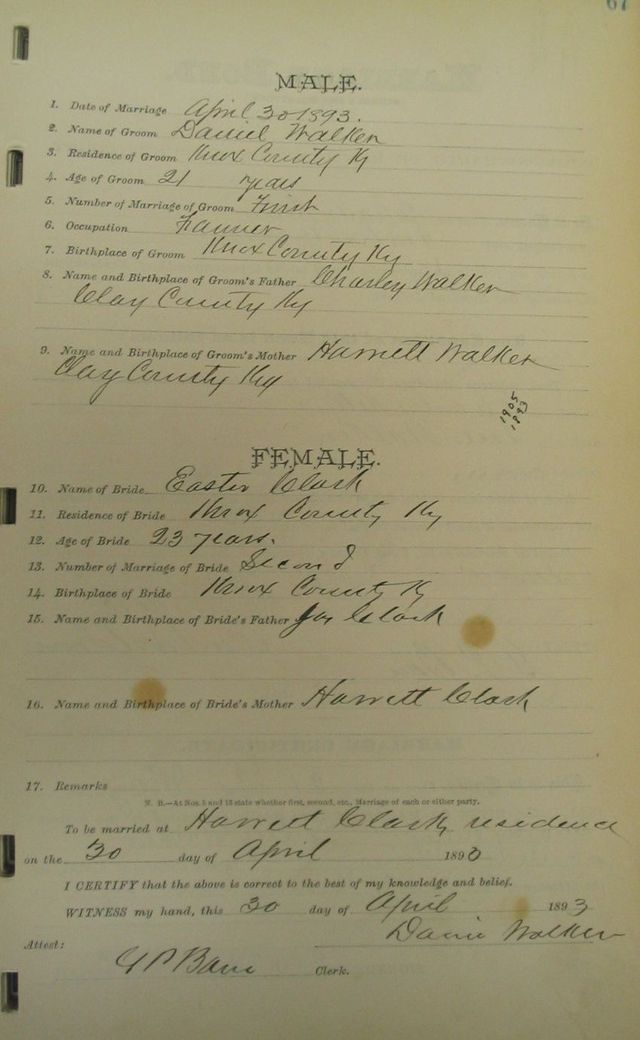 67
MALE.
1. Date of Marriage April 30 1893.
2. Name of Groom Daniel Walker
3. Residence of Groom Knox County Ky
4. Age of Groom 21 years
5. Number of Marriage of Groom First
6. Occupation Farmer
7. Birthplace of Groom Knox County Ky
8. Name and Birthplace of Groom's Father Charley Walker
Clay County Ky
9. Name and Birthplace of Groom's Mother Harrett Walker
Clay County Ky
1905
1893
FEMALE.
10. Name of Bride Easter Clark
11. Residence of Bride Knox County Ky
12. Age of Bride 23 years.
13. Number of Marriage of Bride Second
14. Birthplace of Bride Knox County Ky
15. Name and Birthplace of Bride's Father Clark
16. Name and Birthplace of Bride's Mother Harrett Clark
17. Remarks
N. B.—At Nos. 5 and 13 state whether first, second, etc., Marriage of each or either party.
To be married at Harrett Clarks residence
on the 30 day of April 1893
I CERTIFY that the above is correct to the best of my knowledge and belief.
WITNESS my hand, this 30 day of April 1893
Walker
Attest:
Clerk.